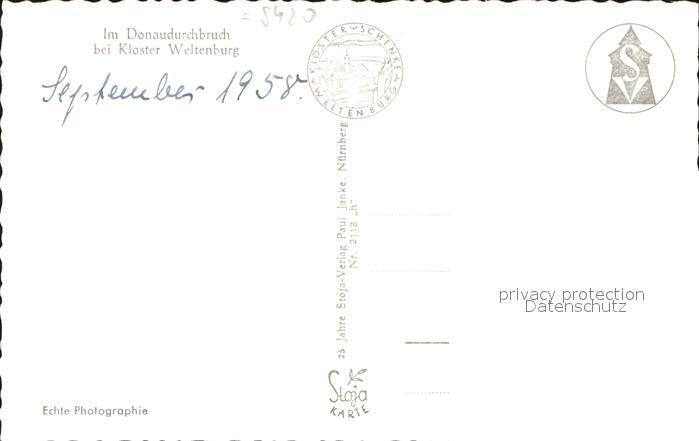 = 8420
Im Donaudurchbruch
bei Kloster Weltenburg
September 1958.
KLOSTER-SCHENKE
WELTENBURG
S
V
25 Jahre Stoja-Verlag Paul Janke, Nürnberg
Nr. 2118 „h"
privacy protection
Datenschutz
Stoja
KARTE
Echte Photographie